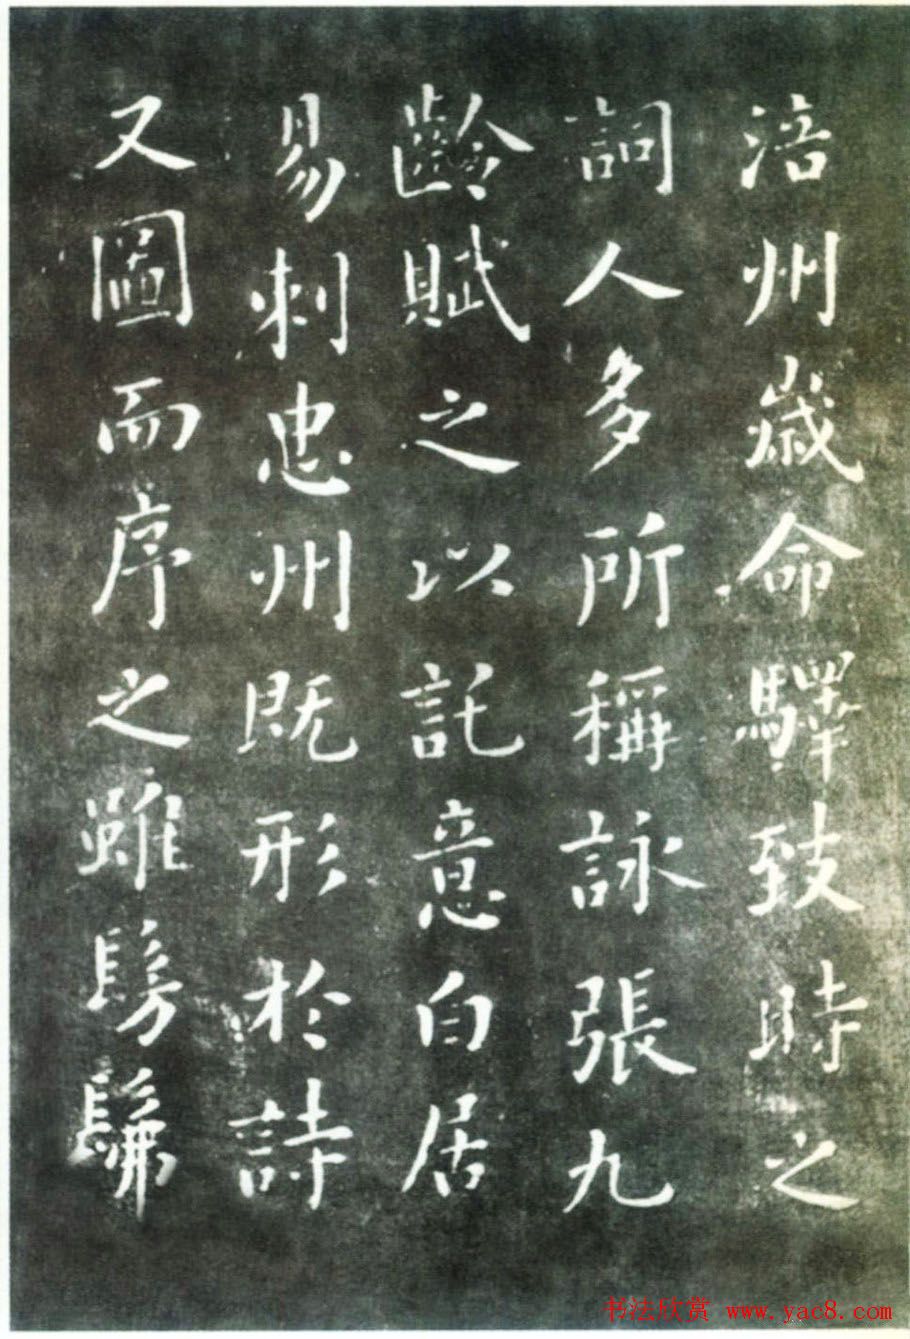 涪州歲命驛致時之
詞人多所稱詠張九
齡賦之以託意白居
易刺忠州既形於詩
又圖而序之雖髣髴
书法欣赏 www.yac8.com